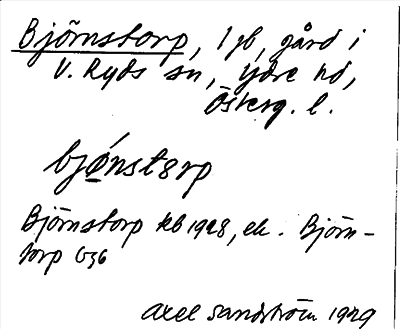 Björnstorp, 1 jb, gård i
V. Ryds sn, Ydre hd,
Österg. l.
bjǿnstørp
Björnstorp kb 1928, ek. Björn-
torp G36
Axel Sandström 1929